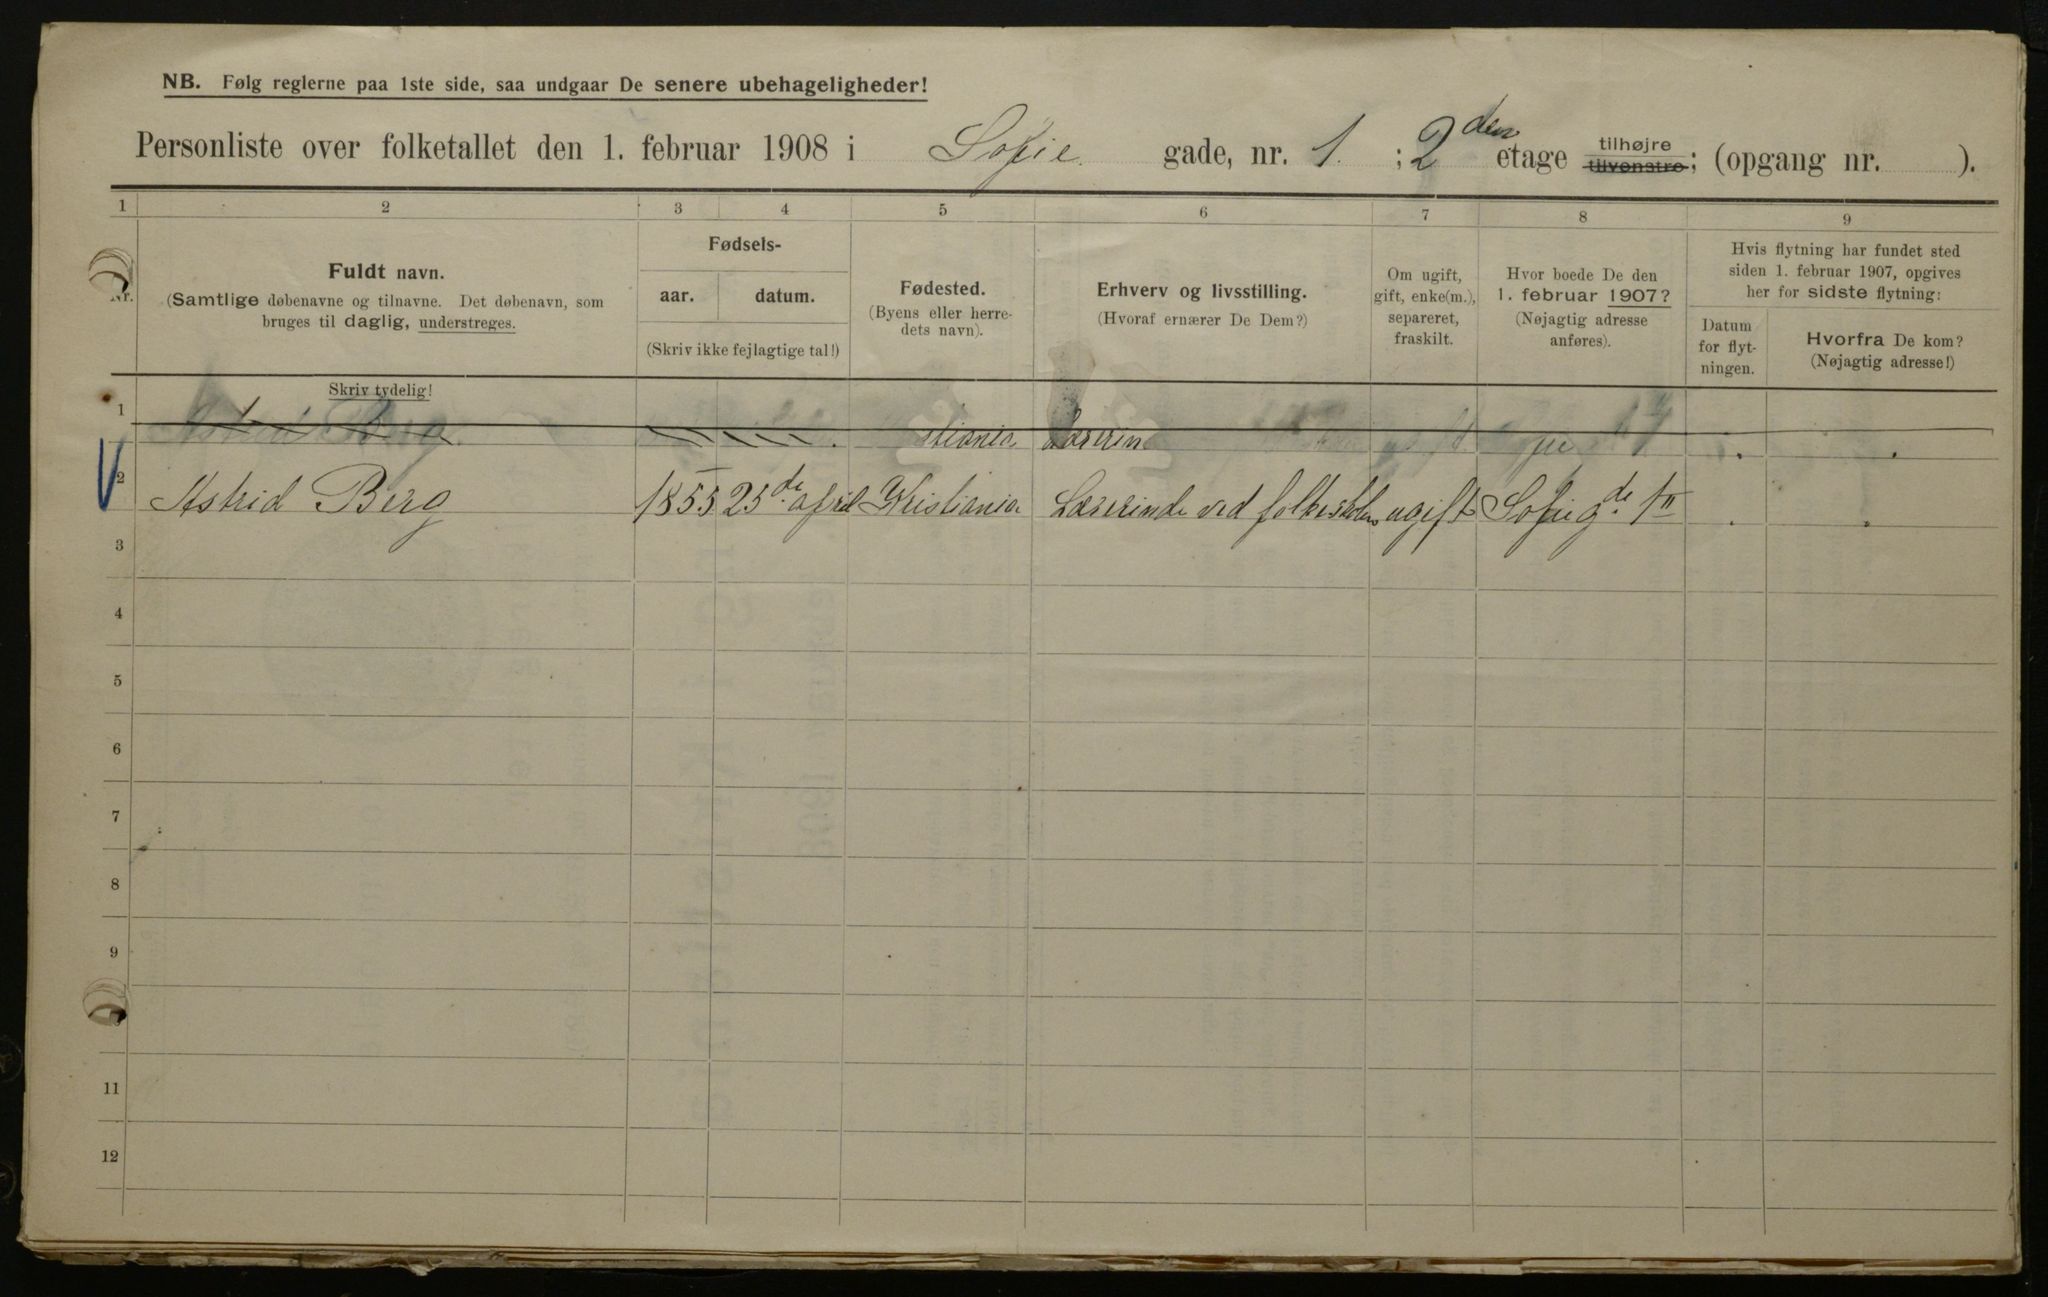 NB. Følg reglerne paa 1ste side, saa undgaar De senere ubehageligheder!
Personliste over folketallet den 1. februar 1908 i Sofie gade, nr. 1. ; 2den etage tilhøjre tilvenstre; (opgang nr. ).
1 2 3 4 5 6 7 8 9
Nr.
Fuldt navn.
(Samtlige døbenavne og tilnavne. Det døbenavn, som
bruges til daglig, understreges.
Skriv tydelig!
Fødsels-
aar. datum.
(Skriv ikke fejlagtige tal!)
Fødested.
(Byens eller herre-
dets navn).
Erhverv og livsstilling.
(Hvoraf ernærer De Dem?)
Om ugift,
gift, enke(m.),
separeret,
fraskilt.
Hvor boede De den
1. februar 1907?
(Nøjagtig adresse
anføres).
Hvis flytning har fundet sted
siden 1. februar 1907, opgives
her for sidste flytning:
Datum
for flyt-
ningen.
Hvorfra De kom?
(Nøjagtig adresse!)
1 Astrid Berg
2 Astrid Berg 1855 25de april Kristiania Lærerinde ved folkeskolen ugift Sofiegde 1II
3
4
5
6
7
8
9
11
12